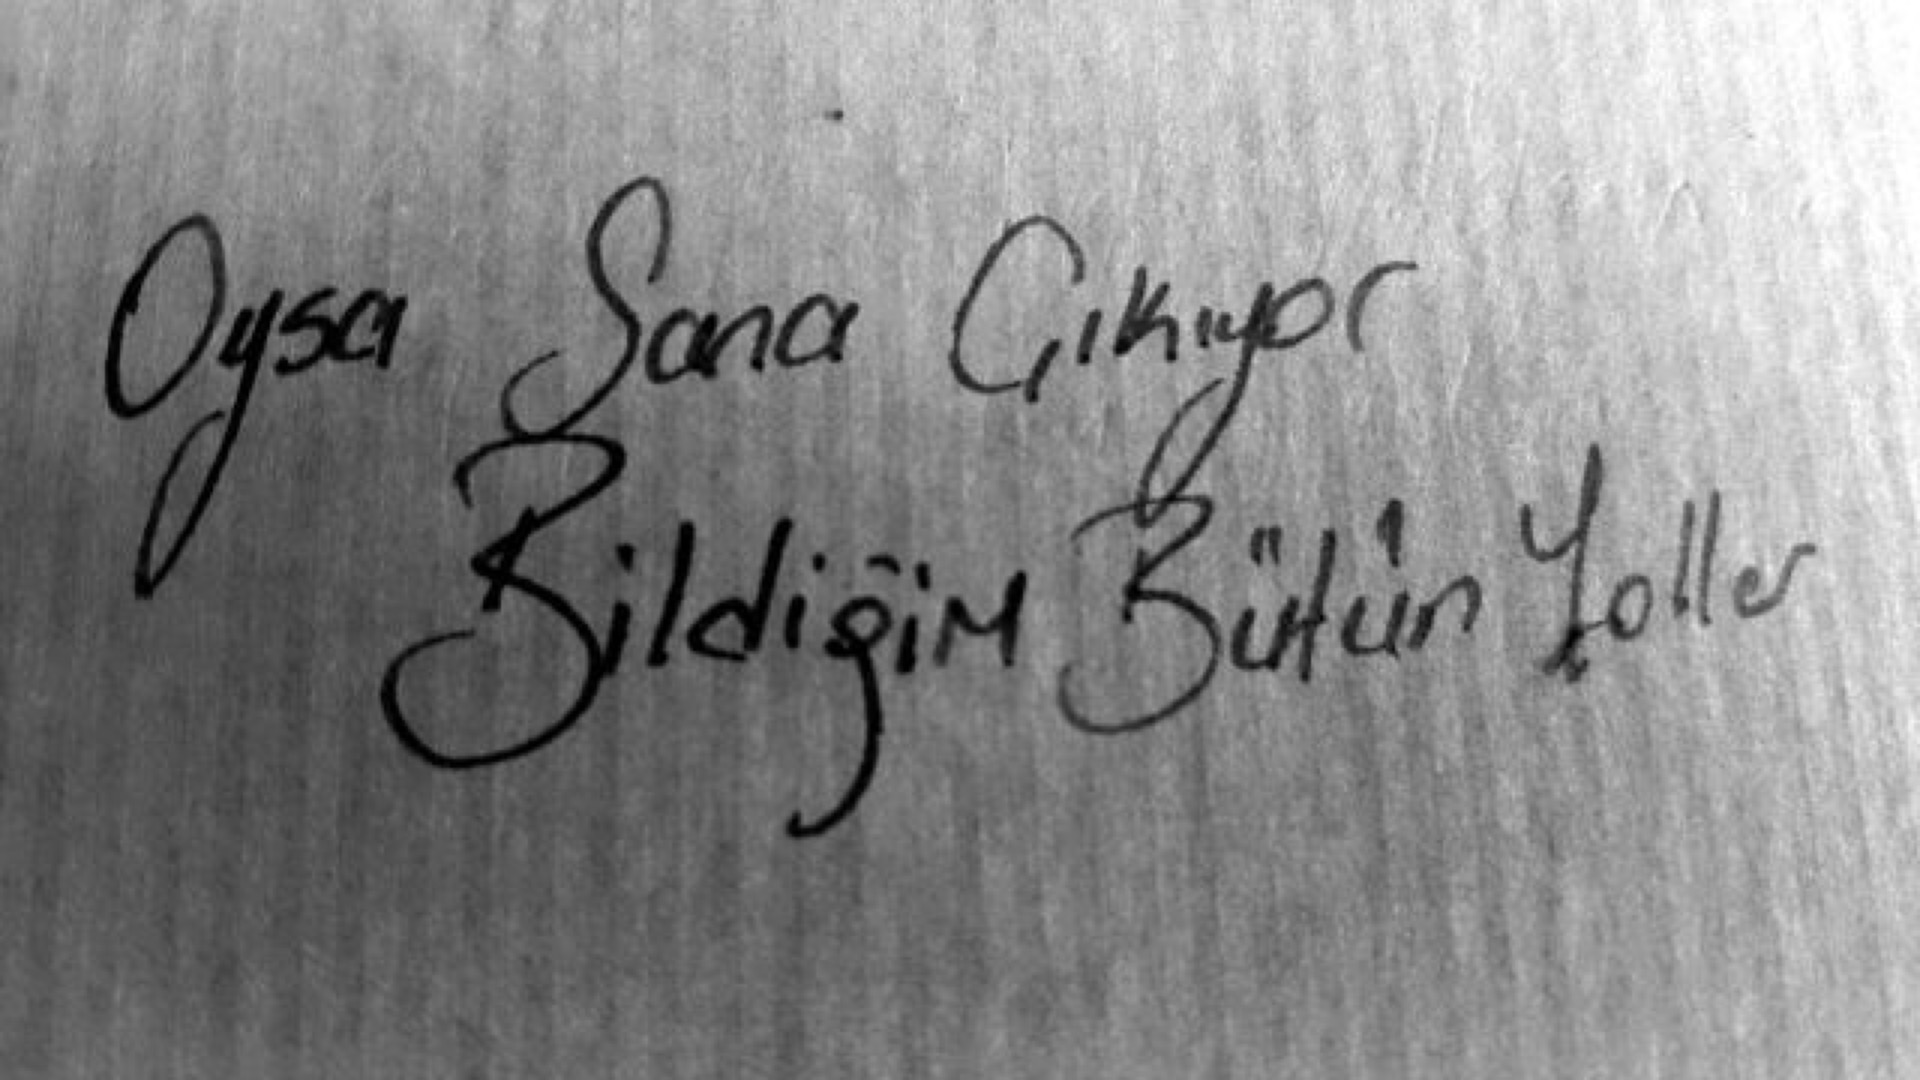 Oysa Sana Çıkıyor
Bildiğim Bütün Yoller